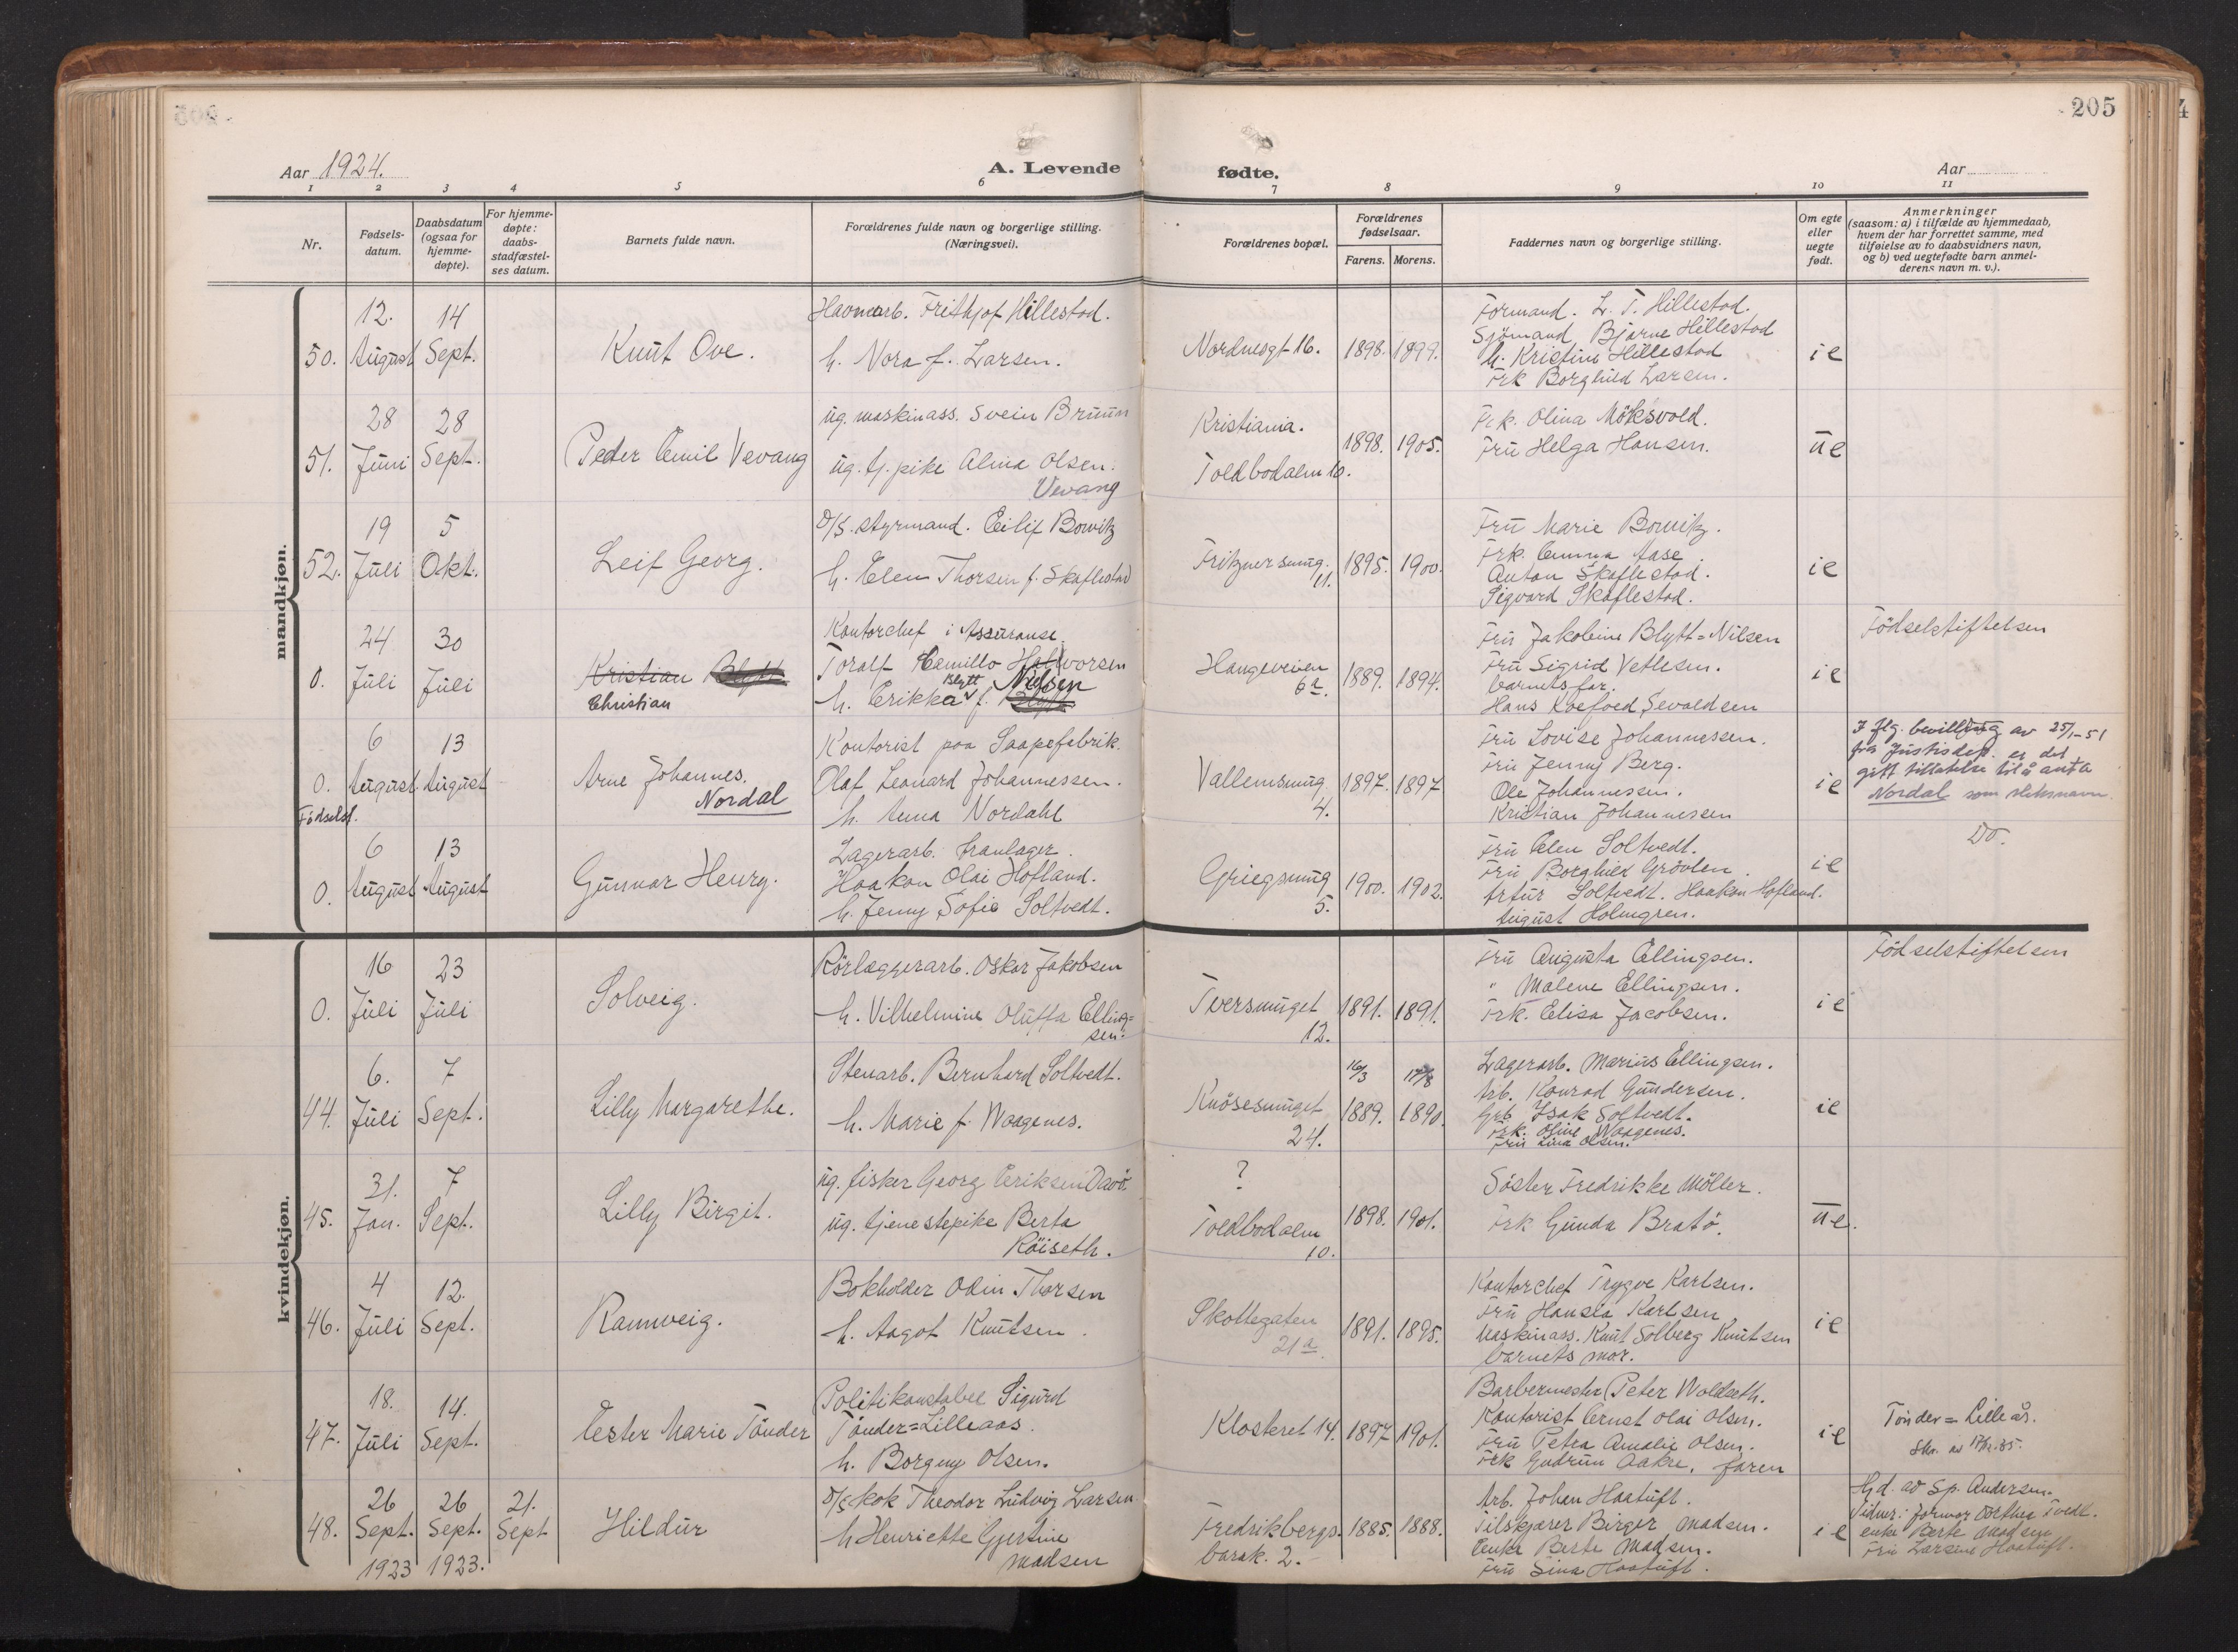 205
Aar 1924.
A. Levende fødte.
Aar
1 2 3 4 5 6 7 8 9 10 11
Nr.
Fødsels-
datum.
Daabsdatum
(ogsaa for
hjemme-
døpte).
For hjemme-
døpte:
daabs-
stadfæstel-
ses datum.
Barnets fulde navn.
Forældrenes fulde navn og borgerlige stilling.
(Næringsvei).
Forældrenes bopæl.
Forældrenes
fødselsaar.
Farens. Morens.
Faddernes navn og borgerlige stilling.
Om egte
eller
uegte
født.
Anmerkninger
(saasom: a) i tilfælde av hjemmedaab,
hvem der har forrettet samme, med
tilføielse av to daabsvidners navn,
og b) ved uegtefødte barn anmel-
derens navn m. v.).
mandkjøn.
50.
12.
August
14
Sept.
Knut Ove.
Havnearb. Frithjof Hillestad.
h. Nora f. Larsen.
Nordnesgt 16.
1898. 1899.
Formand. L. T. Hillestad.
Sjömand Bjarne Hillestad
h. Kristine Hillestad
Frk Borghild Larsen.
ie
51.
28
Juni
28
Sept.
Peder Emil Vevang
ug. maskinass. Svein Bruun
ug. tj. pike Alina Olsen.
Vevang
Kristiania.
Toldbodalm 10.
1898. 1905.
Frk. Olina Möksvold.
Fru Helga Hansen.
ue
52.
19
Juli
5
Okt.
Leif Georg.
D/S. styrmand. Eilif Bowitz
h. Elen Thorsen f. Skaflestad
Fritznersmug.
11.
1895. 1900.
Fru Marie Bowitz.
Frk. Emma Aase
Anton Skaflestad.
Sigvard Skaflestad.
ie
0.
24
Juli
30
Juli
Kristian Blytt
Christian
Kontorchef i Assuranse
Toralf Camillo Halvorsen
h. Erikka Blytt f. Nilsen
Haugeveien
6a.
1889. 1894.
Fru Jakobine Blytt=Nilsen
Fru Sigrid Vetlesen.
barnets far.
Hans Koefoed Sevaldsen
ie
Födselstiftelsen
0.
Födselst.
6
August
13
August
Arne Johannes.
Nordal
Kontorist paa Saapefabrik.
Olaf Leonard Johannessen.
h. Anna Nordahl
Vallemsmug
4.
1897. 1897
Fru Lovise Johannessen.
Fru Jenny Berg.
Ole Johannessen.
Kristian Johannessen
ie
I flg. bevilling av 25/1-51
fra Justisdep. er det
gitt tillatelse til å anta
Nordal som slektsnavn.
0.
6
August
13
August
Gunnar Henry.
Lagerarb. tranlager.
Haakon Olai Hofland.
h. Jenny Sofie Soltvedt.
Griegsmug
5.
1900. 1902.
Fru Elen Soltvedt.
Fru Borghild Grövlen
Artur Soltvedt. Haakon Hofland.
August Holmgren.
ie
Do.
kvindekjøn.
0.
16
Juli
23
Juli
Solveig.
Rörlæggerarb. Oskar Jakobsen
h. Vilhelmine Oluffa Elling=
sen.
Tversmuget
12.
1891. 1891.
Fru Augusta Ellingsen.
" Malene Ellingsen.
Frk. Elisa Jacobsen.
ie
Födselstiftelsen
44.
6.
Juli
7
Sept.
Lilly Margarethe.
Stenarb. Bernhard Soltvedt.
h. Marie f. Waagenes.
Knösesmuget
24.
16/3 17/8
1889. 1890.
Lagerarb. Marius Ellingsen.
Arb. Konrad Gundersen.
Grb. Isak Soltvedt.
Frk. Oline Waagenes.
Fru Lina Olsen.
ie
45.
31.
Jan.
7
Sept.
Lilly Birgit.
ug. fisker Georg Eriksen Davö.
ug. tjenestepike Berta
Röiseth.
?
Toldbodalm
10.
1898. 1901.
Söster Fredrikke Möller.
Frk Gunda Bratö.
ue.
46.
4
Juli
12.
Sept.
Rannveig.
Bokholder Odin Thorsen
h. Aagot Knutsen.
Skottegaten
21a.
1891. 1895.
Kontorchef Trygve Karlsen.
Fru Hansia Karlsen
Maskinass. Knut Solberg Knutsen
barnets mor.
ie
47.
18.
Juli
14.
Sept.
Ester Marie Tönder
Politikonstabel Sigurd
Tönder=Lilleaas.
h. Borgny Olsen.
Klosteret 14.
1897 1901.
Barbermester Peter Woldseth.
Kontorist Ernst Olai Olsen.
Fru Petra Amalie Olsen.
Frk Gudrun Aakre. faren
ie
Tönder= Lilleås.
48.
26
Sept.
1923
26
Sept.
1923.
21.
Sept
Hildur
D/S kok Theodor Ludvig Larsen
h Henriette Gjertine
Madsen
Fredriksbergs.
barak. 2.
1885. 1888.
Arb. Johan Haatuft.
Tilskjærer Birger Madsen.
Enke Berte Madsen.
Fru Sina Haatuft.
ie
Hjd. av Sp. Andersen.
Vidner: Jormor Dorthea Tvedt.
enke Berte Madsen
Fru Larsine Haatuft.